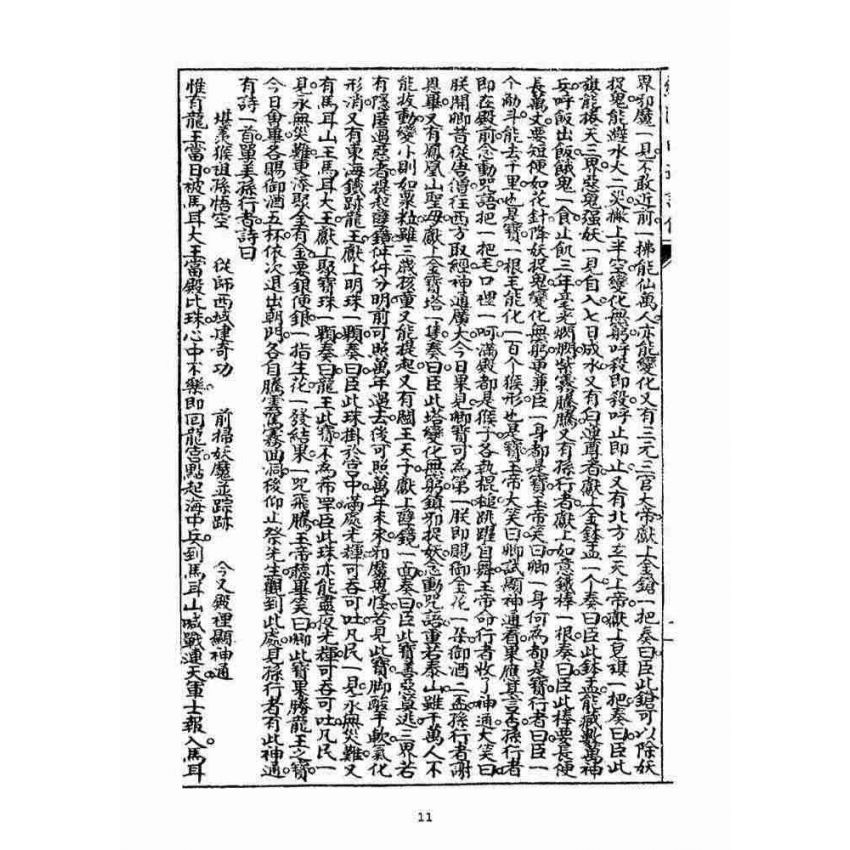 界邪魔一見不敢近前一拂能仙萬人亦能變化又有三元三官大帝獻上金鎗一把奏曰臣此鎗可以除妖
捉鬼能避水火二災撇上半空變化無窮呼殺即殺呼止即止又有北方玄天上帝獻上皂旗一把奏曰臣此
旗能捲天三界惡鬼强妖一見自入七日成水又有白蓮尊者獻上金鉢盂一个奏曰臣此鉢盂能藏數萬神
兵呼飯出飯餓鬼一食止飢三年毫光爛爛紫霧騰騰又有孫行者獻上如意鐵棒一根奏曰臣此棒要長便
長萬丈要短便如花針降妖捉鬼變化無窮更兼臣一身都是寶玉帝笑曰卿一身何為都是寶行者曰臣一
个觔斗能去千里也是寶一根毛能化一百个猴形也是寶玉帝大笑曰卿試顯神通看果應其言否孫行者
即在殿前念動咒語把一把毛口裡一呵滿殿都是猴子各執棍槌跳躍自舞玉帝命行者收了神通大笑曰
朕聞卿昔從唐僧往西方取經神通廣大今日果見卿寶可為第一朕即賜御金花一朶御酒二盃孫行者謝
恩畢又有鳳凰山聖母獻上金寶塔一隻奏曰臣此塔變化無窮鎮邪捉妖念動咒語重若泰山雖千萬人不
能扳動變小則如粟粒雖三歲孩童又能提起又有閻王天子獻上孽鏡一面奏曰臣此寶善惡莫逃三界若
有隱匿過惡者提起孽鏡件件分明前可照萬年過去後可照萬年未來邪魔鬼怪若見此寶脚酸手軟氣化
形消又有東海鐵跡龍王獻上明珠一顆奏曰臣此珠掛於宮中滿處光輝可吞可吐凡民一見永無災難又
有馬耳山王馬耳大王獻上聚寶珠一顆奏曰龍王此寶不為希罕臣此珠亦能晝夜光輝可吞可吐凡民一
見永無災難更濠聚金有金要銀便銀一指生花一發結果一咒飛騰玉帝聽畢笑曰卿此寶果勝龍王之寶
今日會畢各賜御酒五杯依次退出朝門各自騰雲駕霧回洞後仰止祭先生觀到此處見孫行者有此神通
有詩一首單美孫行者詩曰
堪羨猴祖孫悟空　從師西域建奇功　前掃妖魔並踪跡　今又殿裡顯神通
惟有龍王當日被馬耳大王當殿比珠心中不樂即回龍宮點起海中兵到馬耳山喊戰連天軍士報入馬耳
11